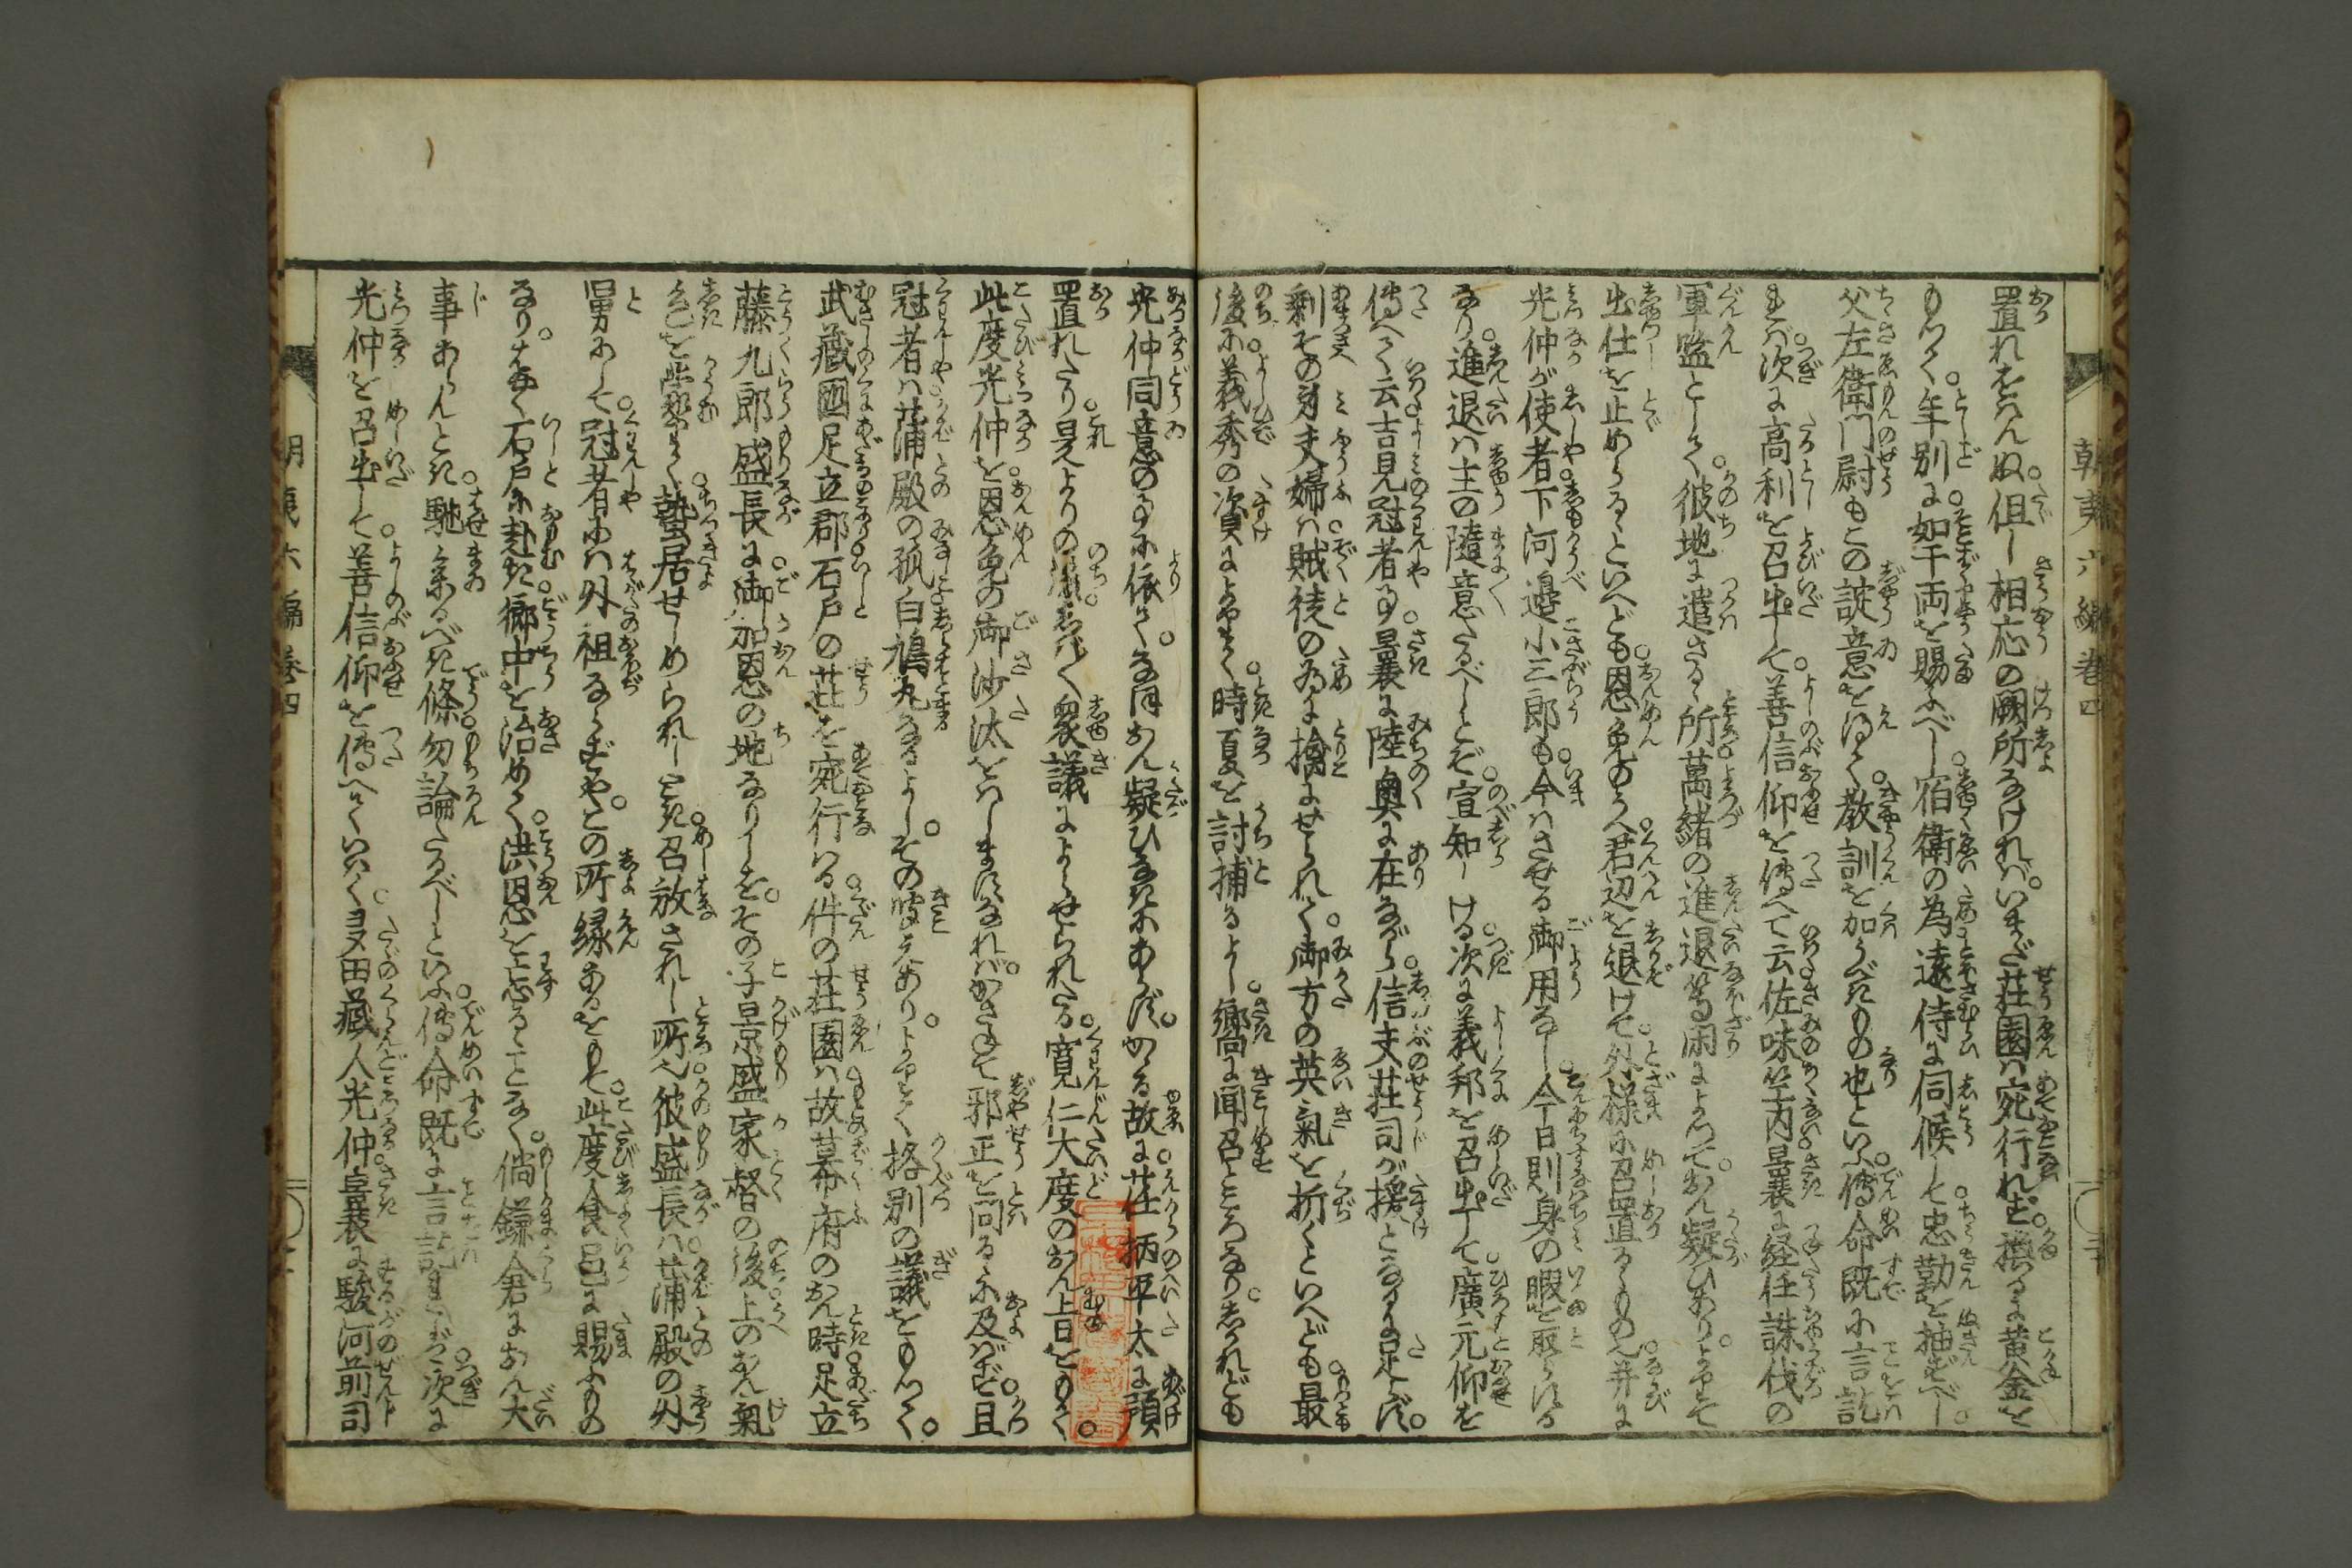 朝夷六編巻四
置れをはんぬ。但し相応の闕所なければ。いまだ荘園は宛行れず。換るに黄金を
もつて。年別に如干両を賜ふべし。宿衛の為遠侍に伺候して。忠勤を抽ずべし。
父左衛門尉もこの諚意を得て。教訓を加うべきもの也といふ。傳命既に言訖
れば。次に高利を召出して。善信仰を傳へて云。佐味竺内曩に経任誅伐の
軍監として。彼地に遣さるゝ所。萬緒の進退等閑によつて。おん疑ひあり。よりて
出仕を止めらるゝといへども。恩免のうへ君辺を退けて。外様に召置るゝもの也。并に
光仲が使者下河邉小三郎も。今はさせる御用なし。今日則身の暇を取らする
なり。進退は主の隨意たるべしとぞ。宣知しける。次に義邦を召出して。廣元仰を
傳へて云。吉見冠者事。曩に陸奥に在ながら。信夫荘司が援となるに足らず。
剰その身夫婦は。賊徒の為に擒にせられて。御方の英氣を折くといへども。最
後に。義秀の資によりて。時夏を討捕るよし。嚮に聞召ところなり。しかれども
光仲同意の事に依て。なほおん疑ひなきにあらず。かゝる故に。荏柄平太に預
置れたり。是よりの後。しば〳〵衆議によらせられたる。寛仁大度のおん上旨をもて。
此度光仲を。恩免の御沙汰をはしますなれば。かさねて邪正を問るゝに及ばず。且
冠者は。蒲殿の孤。白鳩丸なるよし。その聞えあり。よりて格別の議をもつて。
武藏國足立郡。石戸の荘を宛行はる。件の荘園は。故幕府のおん時。足立
藤九郎盛長に。御加恩の地なりしを。その子景盛家督の後。上のおん氣
色を蒙りて。蟄居せしめられしとき。召放されし所也。彼盛長は。蒲殿の外
舅にして。冠者には外祖ならずや。この所縁あるをもて。此度食邑に賜ふもの
なり。はやく石戸に赴き。郷中を治めて。洪恩を忘るゝことなく。倘鎌倉におん大
事あらんとき。馳参るべき條。勿論たるべしといふ。傳命既に言訖れば。次に
光仲を召出して。善信仰を傳へていはく。多田藏人光仲。曩に駿河前司
朝夷六編巻四